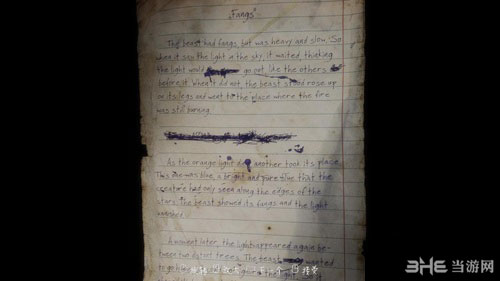 "Fangs"
The beast had fangs, but was heavy and slow. So
when it say the light in the sky, it waited, thinking
the light would go out like the others
before it. When it did not, the beast stood rose up
on its legs and went to the place where the fire
was still burning.
As the orange light another took its place.
This one was blue, a bright and pure blue that the
creature had only seen along the edges of the
stars. The beast showed its fangs and the light
vanished.
A moment later, the light appeared again be-
tween two distant trees. The beast wanted
to the light.
3HE 当游网
3HGAME.COM